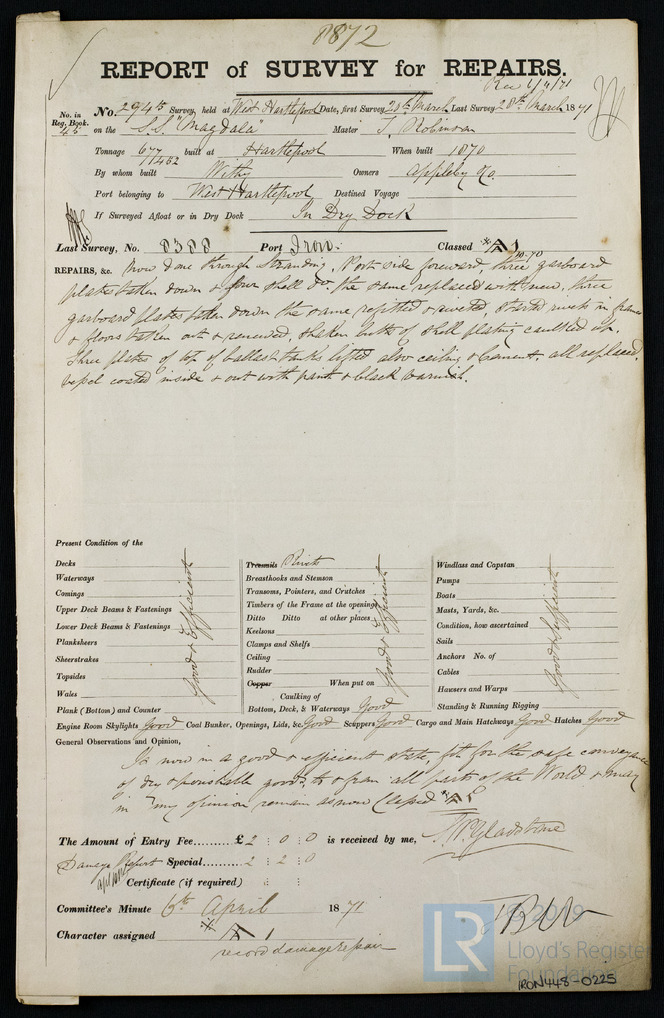 1872
REPORT of SURVEY for REPAIRS.
Rec 6/4/71
No. in Reg. Book. 45
No. 294th Survey, held at West Hartlepool Date, first Survey 20th March Last Survey 28th March 1871
on the S.S. "Magdala" Master T. Robinson
Tonnage 677 / 1462 built at Hartlepool When built 1870
By whom built Withy Owners Appleby &Co.
Port belonging to West Hartlepool Destined Voyage
If Surveyed Afloat or in Dry Dock In Dry Dock
Last Survey, No. 8388 Port Iron. Classed A1
10-70
REPAIRS, &c. Now done through Stranding, Port side forward, three garboard
plates taken down & four shell do. the same replaced with new, three
garboard plates taken down the same refitted & riveted, started rivets in frames
& floors taken out & renewed, shaken butts of shell plating caulked &c.
Three plates of top of ballast tanks lifted also ceiling & cement, all replaced,
vessel coated inside & out with paint & black varnish.
Present Condition of the
Decks
Waterways
Comings
Upper Deck Beams & Fastenings
Lower Deck Beams & Fastenings
Planksheers
Sheerstrakes
Topsides
Wales
Plank (Bottom) and Counter
Good & Efficient
Treenails Rivets
Breasthooks and Stemson
Transoms, Pointers, and Crutches
Timbers of the Frame at the openings
Ditto Ditto at other places
Keelsons
Clamps and Shelfs
Ceiling
Rudder
Copper When put on
Caulking of
Bottom, Deck, & Waterways Good
Good & Efficient
Windlass and Capstan
Pumps
Boats
Masts, Yards, &c.
Condition, how ascertained
Sails
Anchors No. of
Cables
Hawsers and Warps
Standing & Running Rigging
Good & Efficient
Engine Room Skylights Good Coal Bunker, Openings, Lids, &c. Good Scuppers Good Cargo and Main Hatchways Good Hatches Good
General Observations and Opinion,
Is now in a good & efficient state, fit for the safe conveyance
of dry & perishable goods to & from all parts of the World & may
in my opinion remain as now Classed A1
The Amount of Entry Fee......... £ 2 : 0 : 0 is received by me,
Damage Report Special.......... 2 : 2 : 0
Certificate (if required) : :
Committee's Minute 6th April 1871
Character assigned A1
record damage repair
LR
Lloyd's Register
Foundation
IRON448-0225